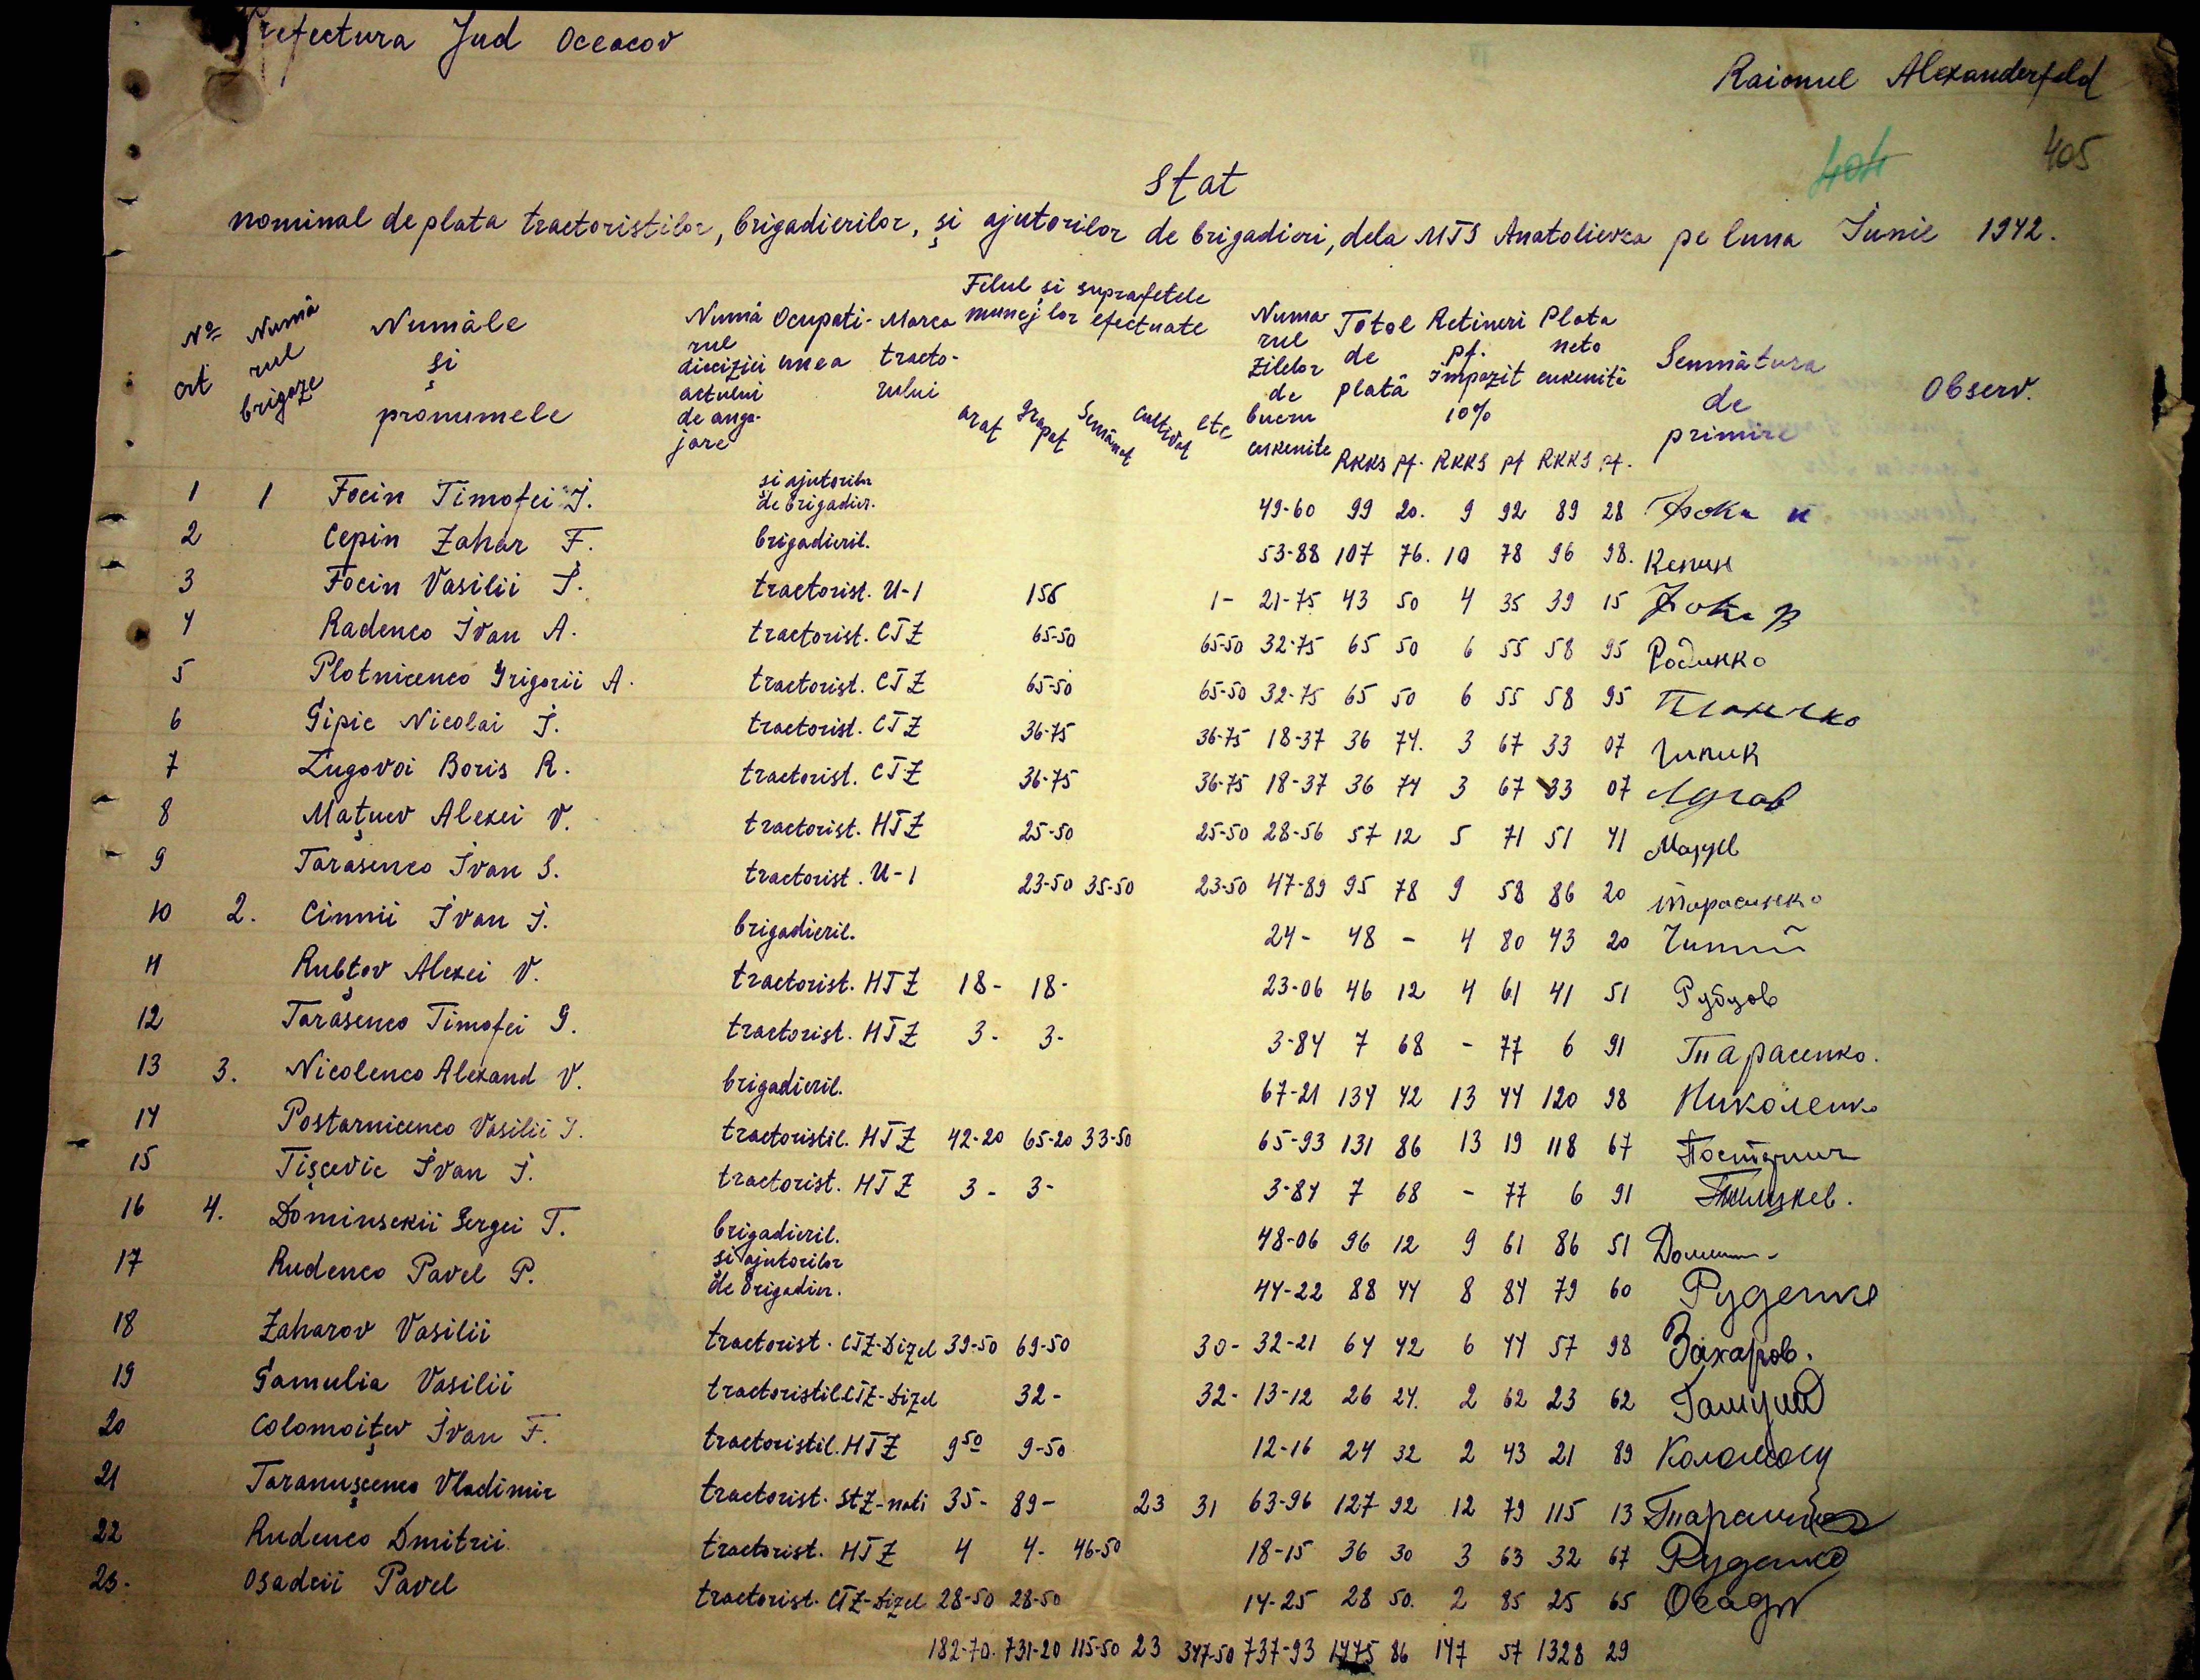 Prefectura Jud Oceacov
Raionul Alexanderfeld
404
405
Stat
nominal de plata tractoristilor, brigadierilor, și ajutorilor de brigadieri, dela MTS Anatolievca pe luna Iunie 1942.
No crt Numă rul brigaze Număle și pronumele Numă rul dieciziei actului de anga- jare Ocupati- unea Marca tracto- rului Felul și suprafetele muncjlor efectuate arat grapat Semănat Cultivat etc Numa- rul Zilelor de lucru cuvenite Total de plată RKKS pf. Retineri pf. Impozit 10% RKKS pf Plata neto cuvenită RKKS pf. Semnătura de primire Observ.
1 1 Focin Timofei I. si ajutorilor de brigadier. 49-60 99 20. 9 92 89 28 Фока И
2 Cepin Zahar F. brigadieril. 53-88 107 76. 10 78 96 98. Кепин
3 Focin Vasilii I. tractorist. U-1 156 1- 21-75 43 50 4 35 39 15 Фока В
4 Radenco Ivan A. tractorist. CTZ 65-50 65-50 32-75 65 50 6 55 58 95 Родинко
5 Plotnicenco Grigorii A. tractorist. CTZ 65-50 65-50 32-75 65 50 6 55 58 95
6 Gipic Nicolai I. tractorist. CTZ 36-75 36-75 18-37 36 74. 3 67 33 07 Гипик
7 Lugovoi Boris R. tractorist. CTZ 36-75 36-75 18-37 36 74 3 67 33 07 Лугов
8 Mațuev Alexei V. tractorist. HTZ 25-50 25-50 28-56 57 12 5 71 51 41 Мацуев
9 Tarasenco Ivan S. tractorist. U-1 23-50 35-50 23-50 47-89 95 78 9 58 86 20 Тарасенко
10 2. Cinnii Ivan I. brigadieril. 24- 48 - 4 80 43 20
11 Rubțov Alexei V. tractorist. HTZ 18- 18- 23-06 46 12 4 61 41 51 Рубцов
12 Tarasenco Timofei G. tractorist. HTZ 3- 3- 3-84 7 68 - 77 6 91 Тарасенко.
13 3. Nicolenco Alexand V. brigadieril. 67-21 134 42 13 44 120 98 Николенко
14 Postarnicenco Vasilii I. tractoristil. HTZ 42-20 65-20 33-50 65-93 131 86 13 19 118 67 Постарнич
15 Tișcevic Ivan I. tractorist. HTZ 3- 3- 3-84 7 68 - 77 6 91
16 4. Dominsckii Sergei T. brigadieril. 48-06 96 12 9 61 86 51
17 Rudenco Pavel P. si ajutorilor de brigadier. 44-22 88 44 8 84 79 60 Руденко
18 Zaharov Vasilii tractorist. CTZ-Dizel 39-50 69-50 30- 32-21 64 42 6 44 57 98 Захаров.
19 Gamulia Vasilii tractoristil CTZ-Dizel 32- 32- 13-12 26 24. 2 62 23 62
20 Colomoițev Ivan F. tractoristil. HTZ 9 50 9-50 12-16 24 32 2 43 21 89
21 Taranușcenco Vladimir tractorist. StZ-nati 35- 89- 23 31 63-96 127 92 12 79 115 13
22 Rudenco Dmitrii. tractorist. HTZ 4 4- 46-50 18-15 36 30 3 63 32 67 Руденко
23. Osadcii Pavel tractorist. CTZ-Dizel 28-50 28-50 14-25 28 50. 2 85 25 65 Осадч
182-70. 731-20 115-50 23 347-50 737-93 1475 86 147 57 1328 29